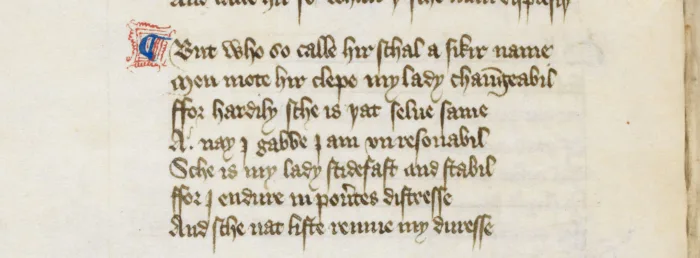 But who so calle hir schal a sikir name
Men mote hir clepe my lady chaūgeabil
ffor hardily sche is yat selue same
A. nay I gabbe I am vnresonabil
Sche is my lady stidefast and stabil
ffor I endure in distresse
And sche nat liste remue my duresse